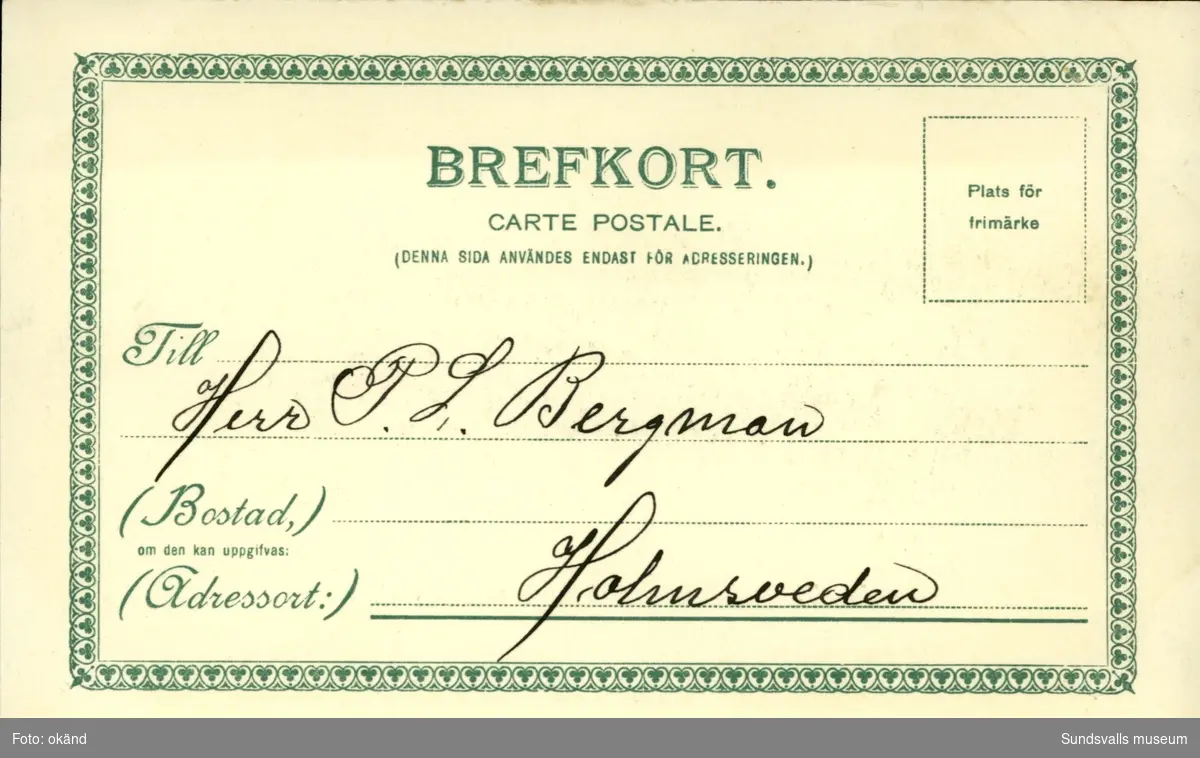 BREFKORT.
CARTE POSTALE.
(DENNA SIDA ANVÄNDES ENDAST FÖR ADRESSERINGEN.)
Plats för
frimärke
Till
Herr P. L. Bergman
(Bostad,)
om den kan uppgifvas:
(Adressort:)
Holmsveden
Foto: okänd
Sundsvalls museum